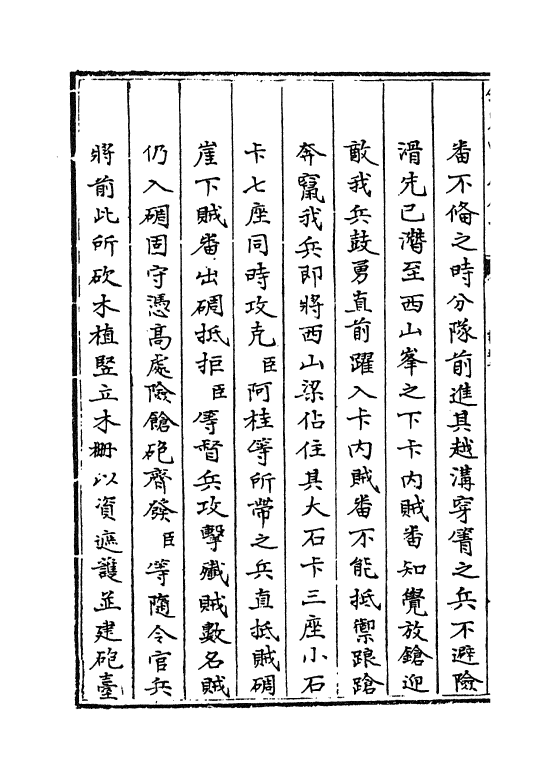 畨不備之時分隊前進其越溝穿箐之兵不避險
滑先已潛至西山峯之下卡内賊畨知覺放鎗迎
敵我兵鼓勇直前躍入卡内賊畨不能抵禦踉蹌
奔竄我兵即將西山梁佔住其大石卡三座小石
卡七座同時攻克臣阿桂等所帶之兵直抵賊碉
崖下賊畨出碉抵拒臣等督兵攻擊殱賊數名賊
仍入碉固守憑髙處險鎗砲齊發臣等隨令官兵
將前此所砍木植竪立木柵以資遮護並建砲臺